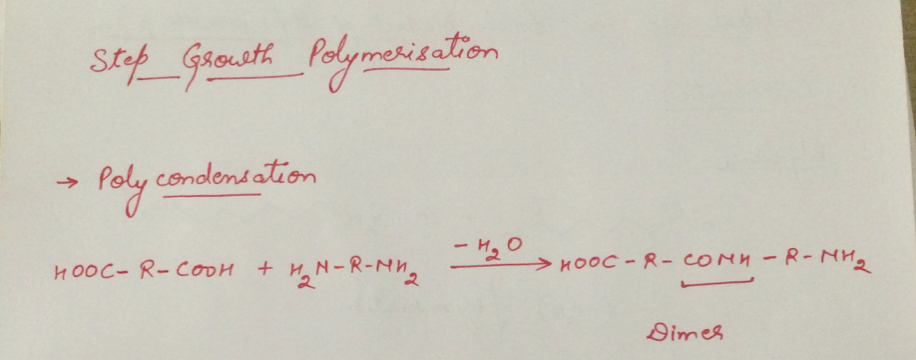 Step Growth Polymerisation
→ Polycondensation
HOOC-R-COOH + H₂N-R-NH₂ -H₂O → HOOC-R-CONH-R-NH₂
Dimer